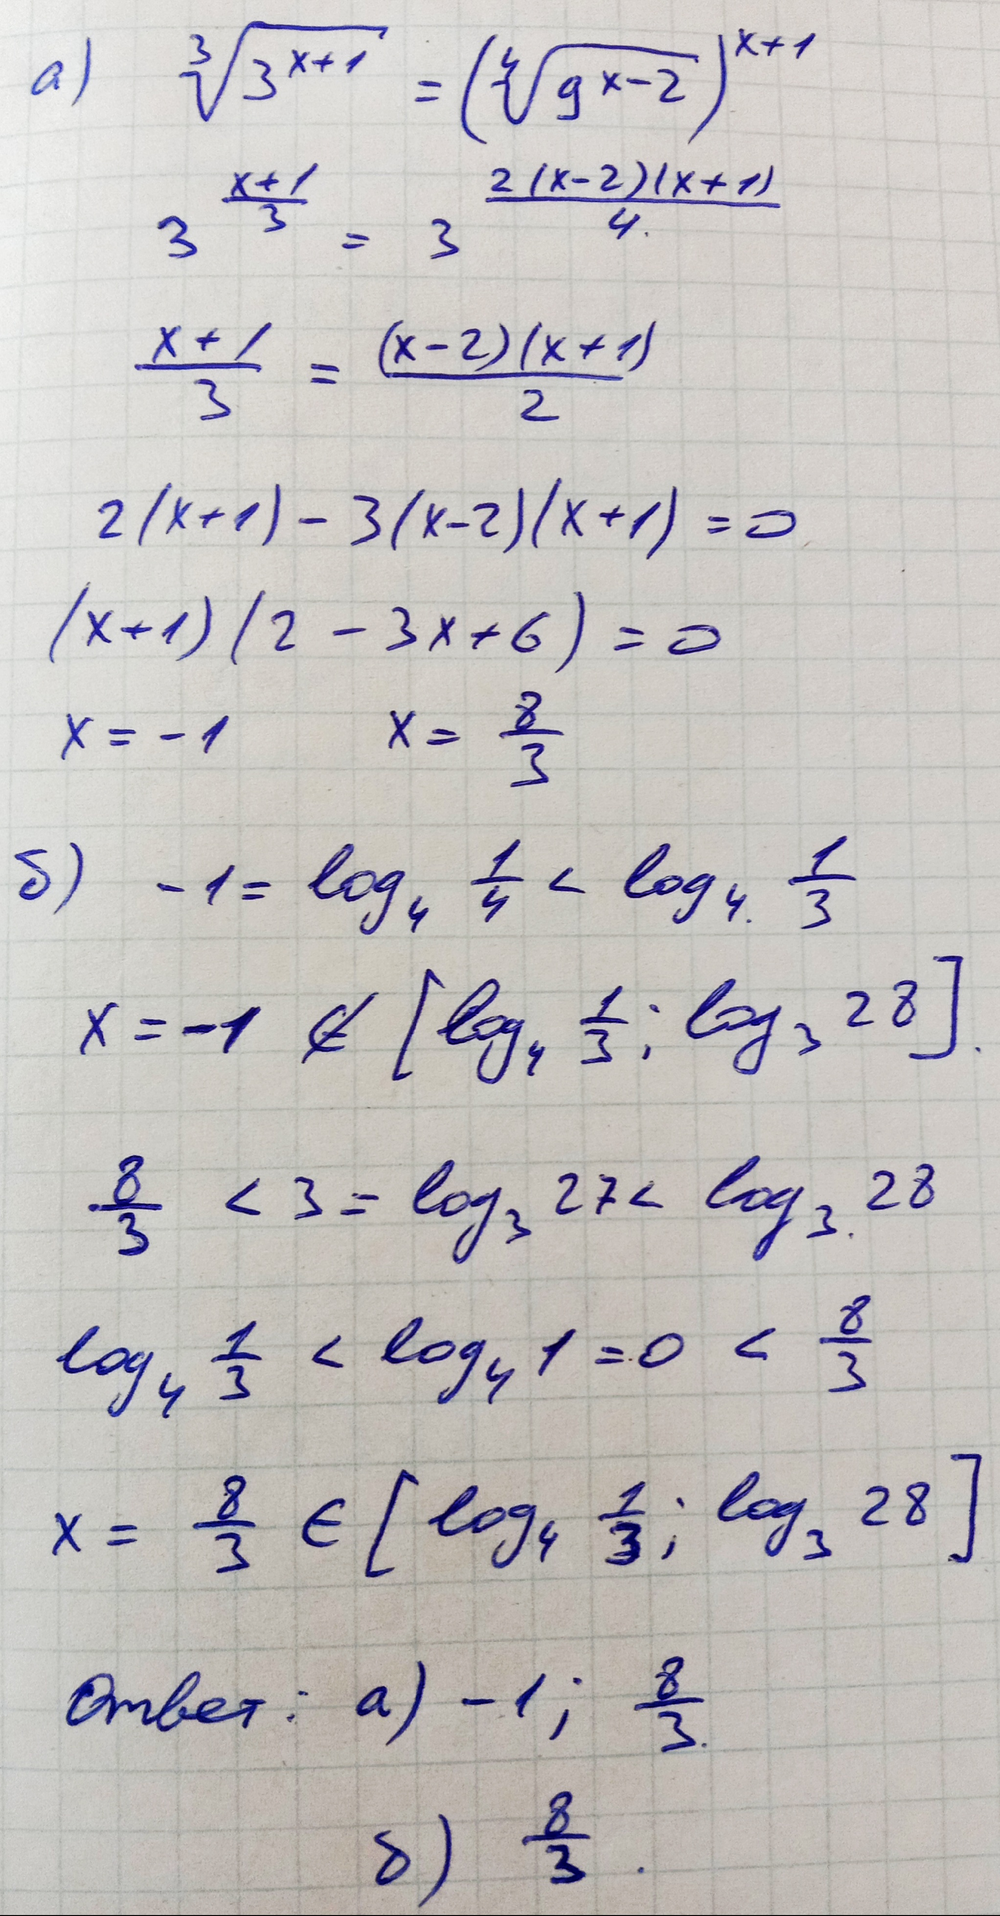 а) ∛(3^(x+1)) = (∜(9^(x-2)))^(x+1)
3^((x+1)/3) = 3^(2(x-2)(x+1)/4)
(x+1)/3 = (x-2)(x+1)/2
2(x+1) - 3(x-2)(x+1) = 0
(x+1)(2 - 3x + 6) = 0
x = -1    x = 8/3
б) -1 = log₄ 1/4 < log₄ 1/3
x = -1 ∉ [log₄ 1/3; log₃ 28].
8/3 < 3 = log₃ 27 < log₃ 28
log₄ 1/3 < log₄ 1 = 0 < 8/3
x = 8/3 ∈ [log₄ 1/3; log₃ 28]
Ответ: а) -1; 8/3.
б) 8/3.